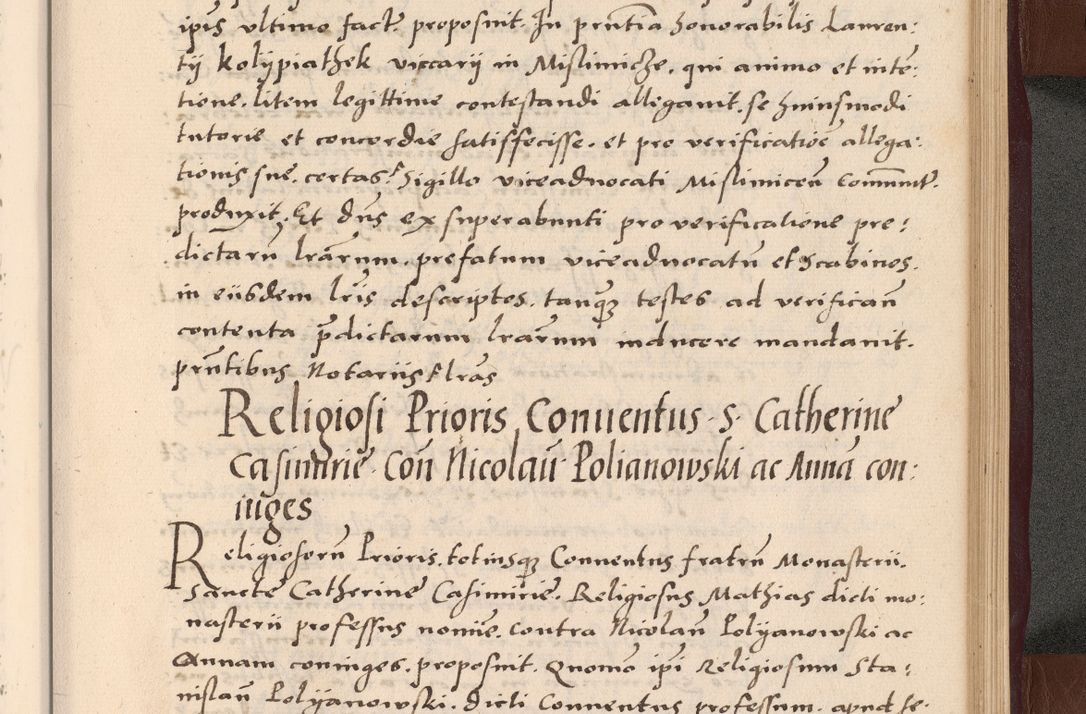 ipīs ultimo fact. proposuit. In pn̄tia honorabilis Lauren:
tij kolypiathek viccarij in Mislimicze. qui animo et inte͞:
tione. litem legittime contestandi allegauit. se huiusmodi
tutorie et concordie satisfecisse. et pro verificatiōe allega:
tionis sue. certas Sigillo viceaduocati Mislimicen̄ Com̄unit.
produxit. Et dn̄s ex superabunti pro verificatione pre:
dictarū lrārum. prefatum viceaduocatū et Scabinos.
in eiisdem lrīs descriptos. tanq̄ʒ testes ad verificān
contenta p̄dictarum lrārum inducere mandauit.
pn̄tibus Notariis lrās
Religiosi Prioris Conuentus S. Catherine
Casimirie. Con̄ Nicolau̅ Polianowski ac Annā con:
iuges
Religiosorū Prioris. totiusqʒ Conuentus fratrū Monasterii.
Sancte Catherine Casimirie. Religiosus Mathias dicti mo:
nasterii professus nomīe. Contra Nicolaū Polyanowski ac
Annam coniuges. proposuit. Quomō ipi Religiosum Sta:
nislaū Polyanowski. dicti Conuentus professum. apud se.